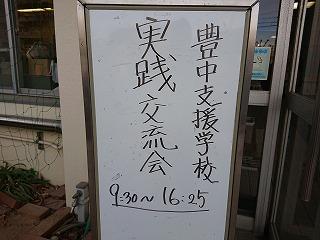 豊中支援学校
実践交流会
9:30～16:25